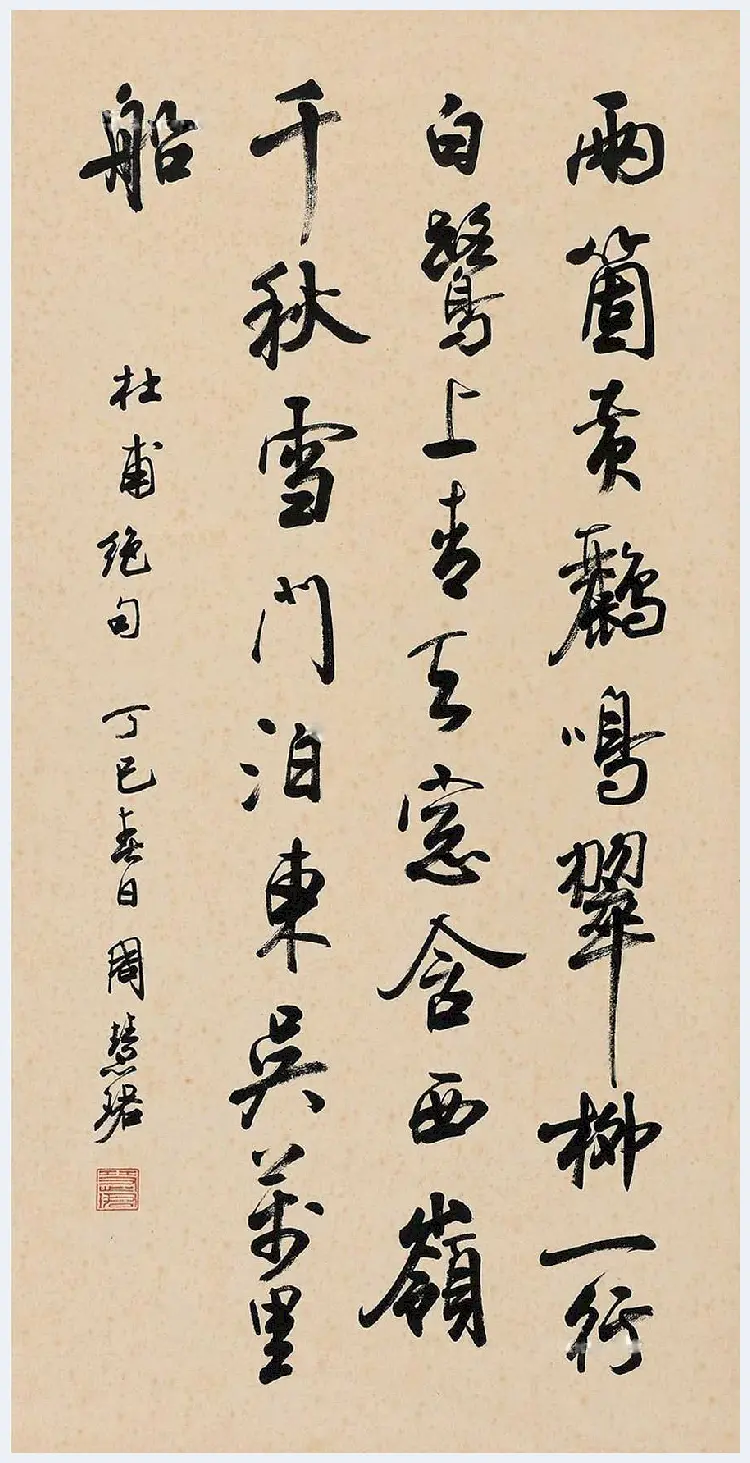 兩箇黃鸝鳴翠柳一行
白鷺上青天窓含西嶺
千秋雪門泊東吳萬里
船
杜甫絕句 丁巳春日 周慧珺